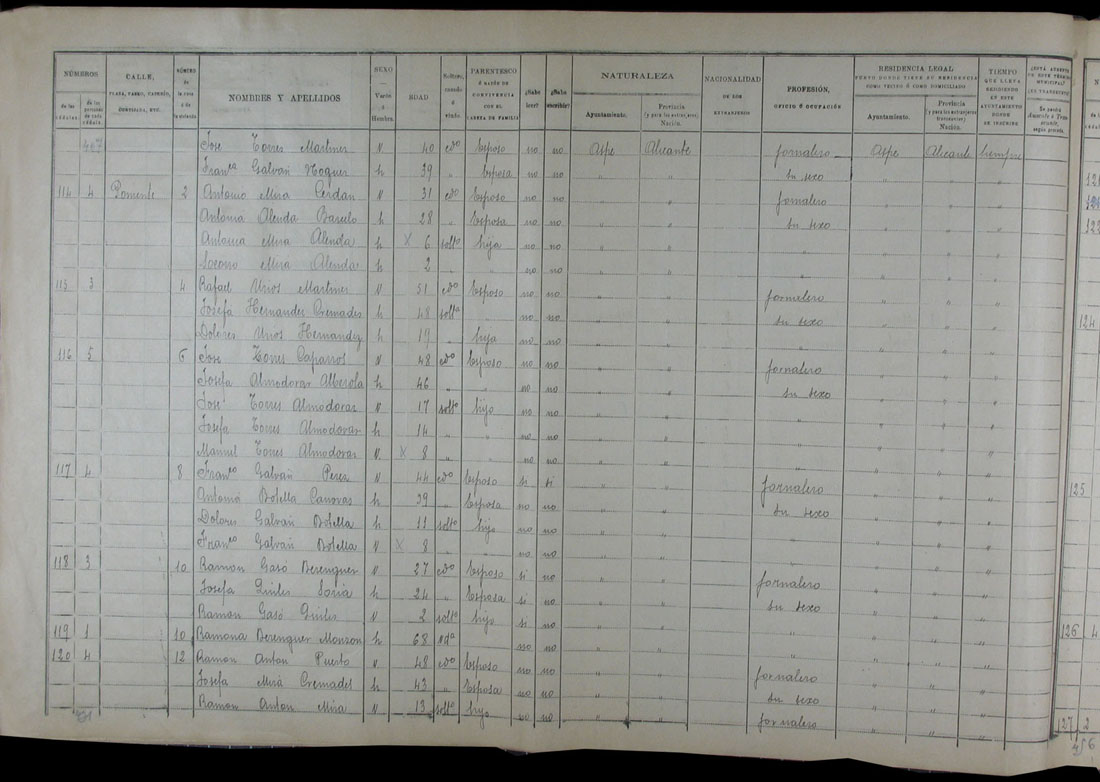 NÚMEROS
de las cédulas
CALLE,
PLAZA, PASEO, CASERÍO, CORTIJADA, ETC.
NÚMERO de la casa
NOMBRES Y APELLIDOS
SEXO Varón ó Hembra
EDAD
Soltero, casado ó viudo.
PARENTESCO Ó RAZÓN DE CONVIVENCIA CON EL CABEZA DE FAMILIA
¿Sabe leer?
¿Sabe escribir?
NATURALEZA
Ayuntamiento.
Provincia (y para los extranjeros, Nación.
NACIONALIDAD DE LOS EXTRANJEROS
PROFESIÓN, OFICIO Ó OCUPACIÓN
RESIDENCIA LEGAL
PUNTO DONDE TIENE SU RESIDENCIA COMO VECINO Ó COMO DOMICILIADO
Ayuntamiento.
Provincia (y para los extranjeros transeuntes) Nación.
TIEMPO QUE LLEVA RESIDIENDO EN ESTE AYUNTAMIENTO DONDE SE INSCRIBE
Jose Torres Martinez v 40 cdo Esposo no no Aspe Alicante jornalero Aspe Alicante siempre
Franca Galvañ h 39 " Esposa no no " " su sexo " " "
114 4 Poniente 2 Antonio Mira Cerdan v 31 cdo Esposo no no " " jornalero " " "
Antonia Alenda h 28 " Esposa no no " " su sexo " " "
Antonia Mira Alenda h X 6 solto hija no no " " " " " "
Socorro Mira Alenda h 2 " " no no " " " " " "
115 3 4 Rafael Martinez v 51 cdo Esposo no no " " jornalero " " "
Josefa Hernandez Cremades h 48 solta " no no " " su sexo " " "
Dolores Hernandez h 19 " hija no no " " " " " "
116 5 6 Jose Torres Caparros v 48 cdo Esposo no no " " jornalero " " "
Josefa Almodovar Alberola h 46 " " no no " " su sexo " " "
Jose Torres Almodovar v 17 solto hijo no no " " " " " "
Josefa Torres Almodovar h 14 " " no no " " " " " "
Manuel Torres Almodovar v X 8 " " no no " " " " " "
117 4 8 Franco Galvañ Perez v 44 cdo Esposo si si " " jornalero " " "
Antonia Botella Canovas h 39 " Esposa no no " " su sexo " " "
Dolores Galvañ Botella h 11 solto hijo no no " " " " " "
Franco Galvañ Botella v X 8 " " no no " " " " " "
118 3 10 Ramon Gasó Berenguer v 27 cdo Esposo si no " " jornalero " " "
Josefa Soria h 24 " Esposa si no " " su sexo " " "
Ramon Gasó v 2 solto hijo si no " " " " " "
119 1 10 Ramona Berenguer Monzon h 68 vda no no " " " " " "
120 4 12 Ramon Anton Puerto v 48 cdo Esposo no no " " jornalero " " "
Josefa Mira Cremades h 43 " Esposa no no " " su sexo " " "
Ramon Anton Mira v 13 solto hijo no no " " jornalero " " "
124
125
126 4
127 2